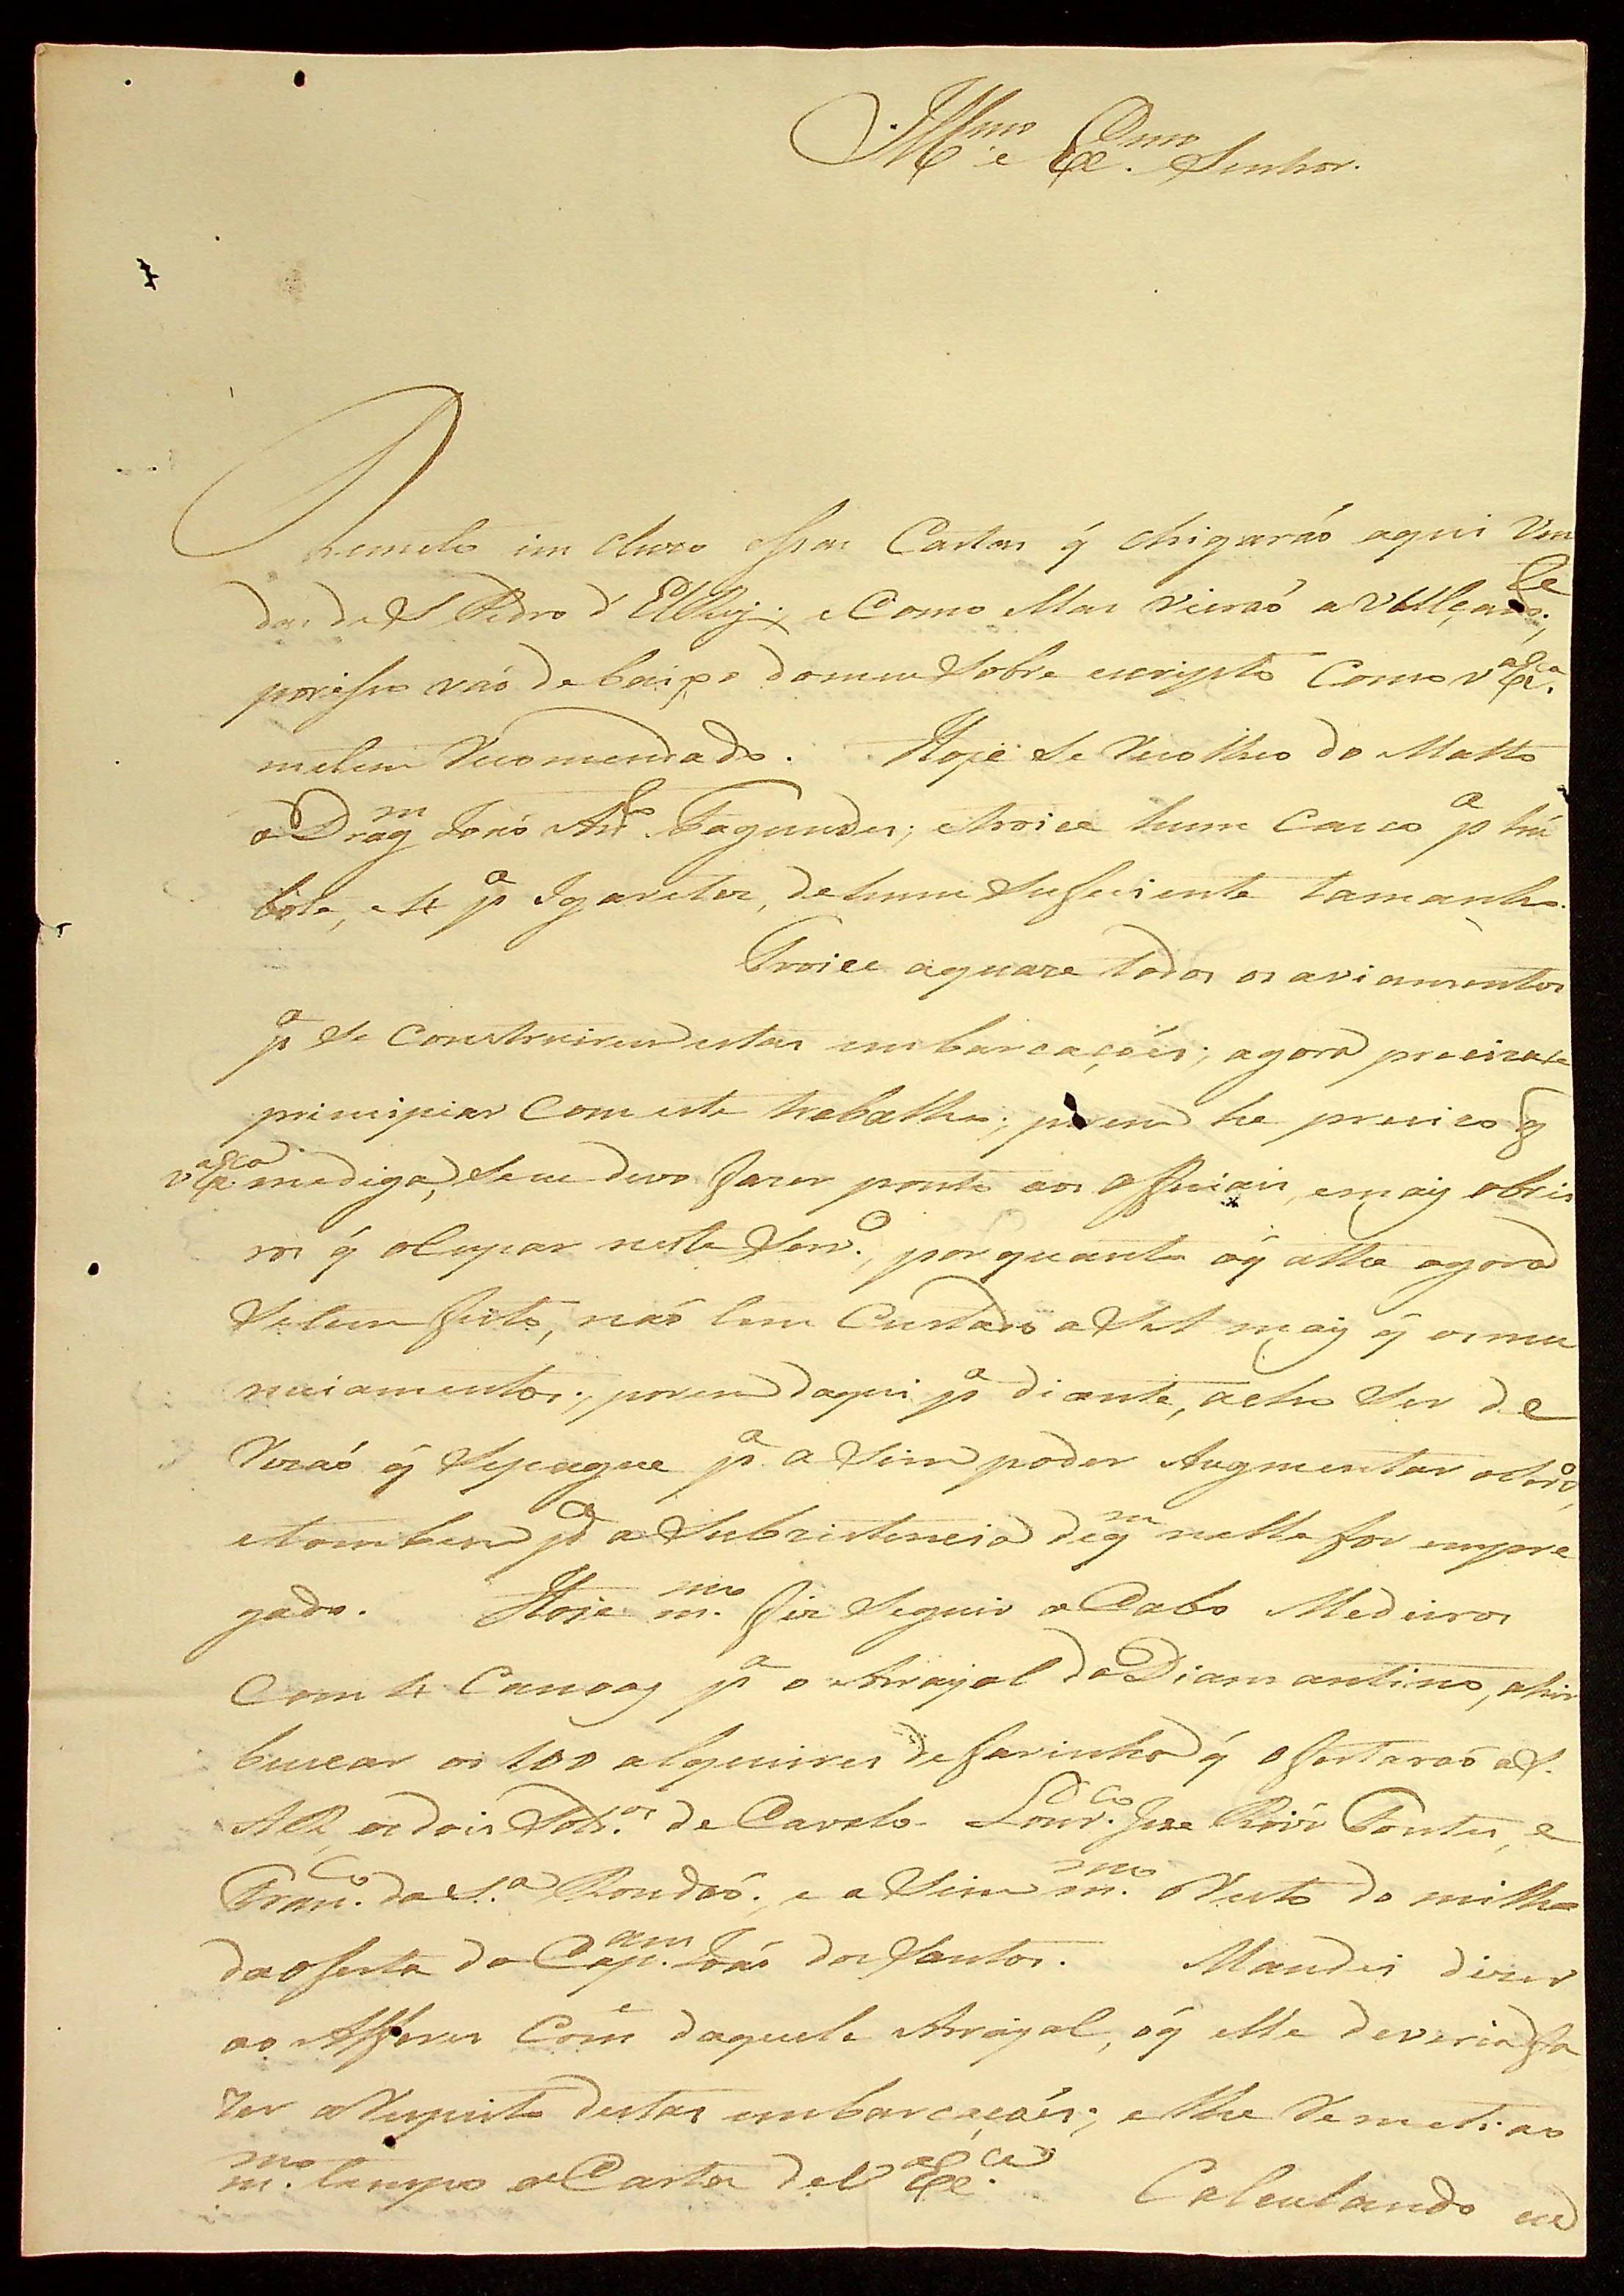 Illmo e Exmo Senhor.
Remeto incluzo essas Cartas q̃ chigaráo aqui vin
das de S Pedro d'ElRey; e Como ellas vieraó a vulçase,
porisso vaó debaixo domeu Sobre escripto Como V.ª Ex.ca
metem Recomendado. Hoje se Recolheo do Matto
o Dragm Joaó Anto Fagundes; etroice hum Casco pª hũ
bote, e 4 pª Igarites, dehum Suficiente tamanho.
Troice aguaze todos os aviamentos
pª se Construirem estas embarcaçoés; agora precizase
principiar Com este trabalho; porem he precizo q̃
V.ª Ex.ca mediga, Seeu devo fazer ponto aos Oficiais, emaiz obrei
ros q̃ ocupar neste Serv.º, porquanto oq̃ athe agora
Setem feito, naó tem Custado a S A maiz q̃ os mu
niciamentos; porem daqui pª diante, acho Ser de
Rezaó q̃ Sepague pª a Sim poder Augmentar o Serv.º,
etambem pª a Subzistencia deqm nelle for empre
gado. Hoje m.mo fiz Seguir o Cabo Medeiros
Com 4 Canoaz pª o Arrayal do Diamantino, ahir
buscar os 100 alqueires de farinha q̃ ofertaraó a S.
A R, os dois Sold.os de Cavalo Lour.ço Jose Roiz Pontes, e
Fran.co da S.ª Rondaó; e a Sim m.mo o Resto do milho
da oferta do Cap.am Joaó dos Santos. Mandei dizer
ao Alferes Come daquele Arrayal, oq̃ elle deveria fa
zer a Respeito destas embarcaçoés; elhe Remeti ao
m.mo tempo a Carta de V.ª Ex.ca Calculando eu